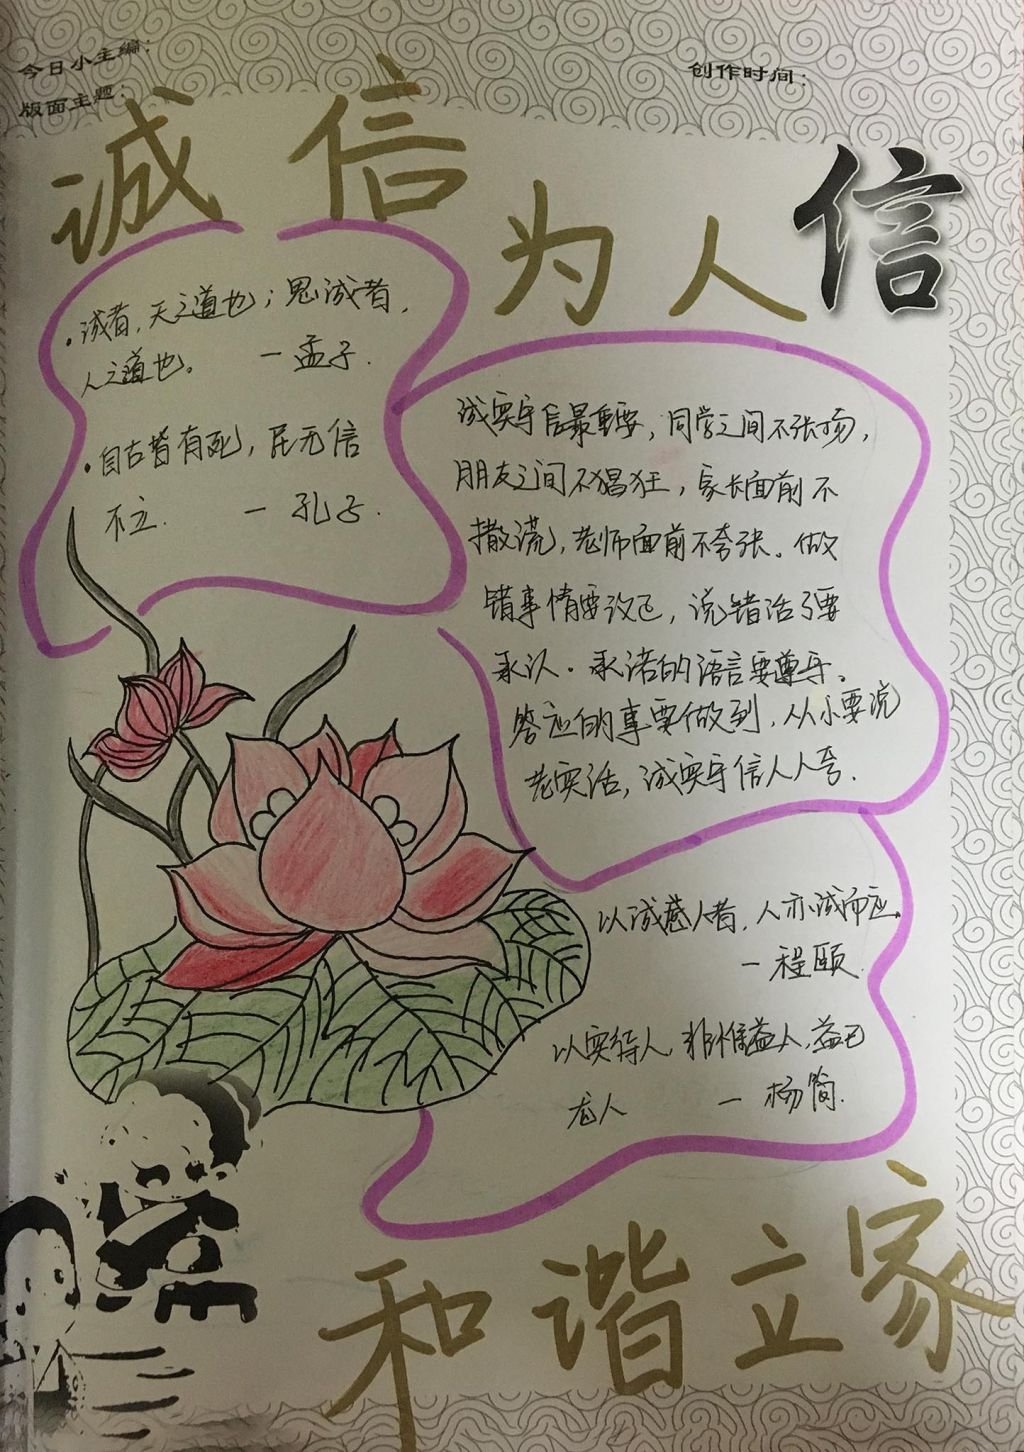 今日小主编：
版面主题：
创作时间：
诚信为人
信
·诚者，天之道也；思诚者，
人之道也。 一孟子.
·自古皆有死，民无信
不立. 一孔子.
诚实守信最重要，同学之间不张扬，
朋友之间不猖狂，家长面前不
撒谎，老师面前不夸张。做
错事情要改正，说错话了要
承认.承诺的语言要尊守。
答应的事要做到，从小要说
老实话，诚实守信人人夸.
以诚感人者，人亦诚而应.
一程颐.
以实待人，非惟益人，益己
尤人 一杨简.
和谐立家